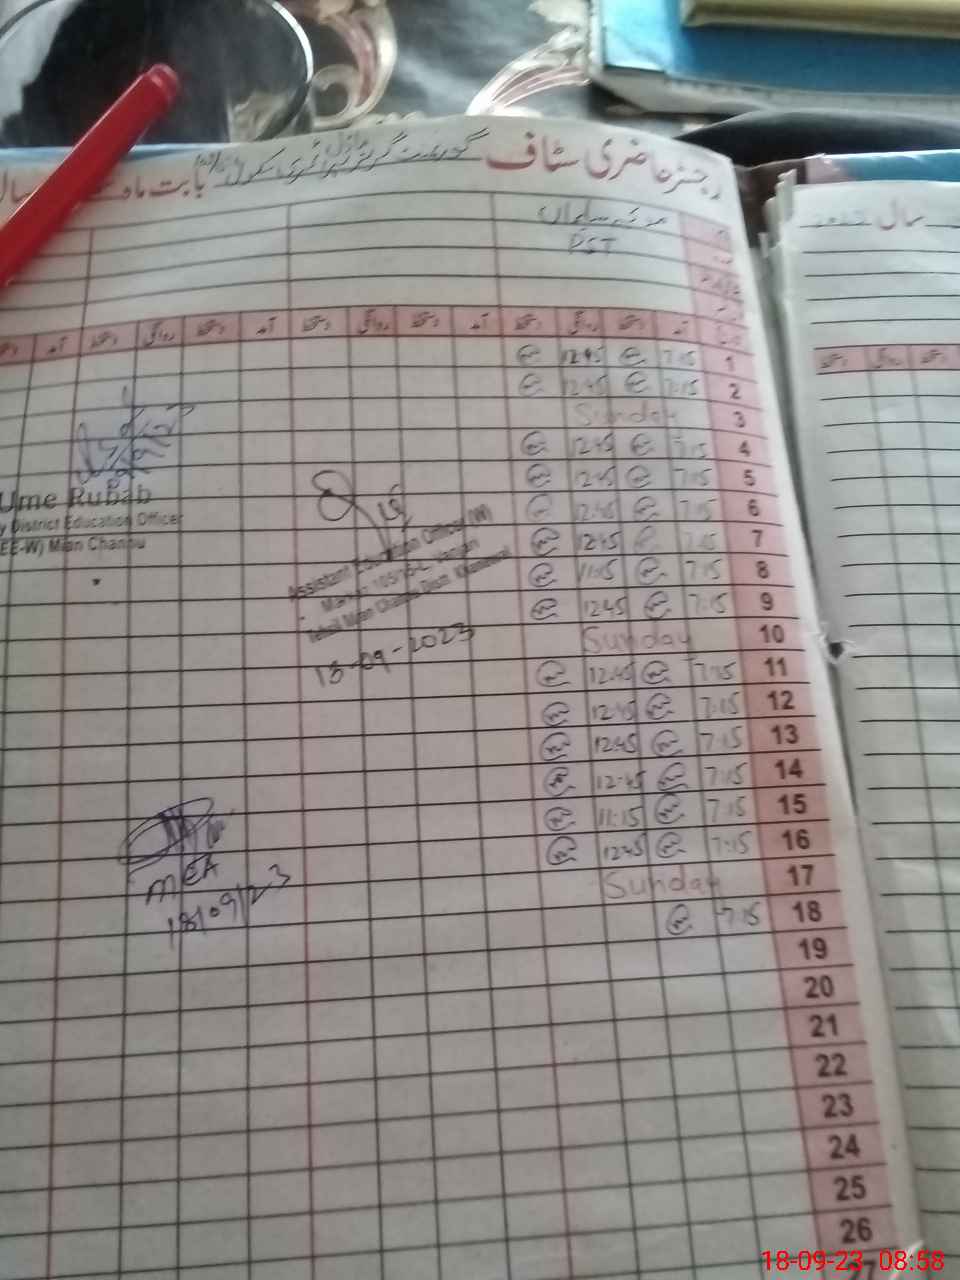 رجسٹر حاضری سٹاف گورنمنٹ گرلز ماڈل پرائمری سکول بابت ماہ
سال
PST
آمد دستخط روانگی دستخط آمد دستخط روانگی دستخط آمد دستخط روانگی دستخط آمد
دستخط روانگی دستخط
12:45 7:15 1
12:45 7:15 2
Sunday 3
12:45 7:15 4
12:45 7:15 5
12:45 7:15 6
12:45 7:15 7
11:15 7:15 8
12:45 7:15 9
Sunday 10
12:45 7:15 11
12:45 7:15 12
12:45 7:15 13
12:45 7:15 14
11:15 7:15 15
12:45 7:15 16
Sunday 17
7:15 18
19
20
21
22
23
24
25
26
Ume Rubab
y District Education Officer
(EE-W) Mian Channu
Assistant Education Officer (W)
Tehsil Mian Channu Distt. Khanewal
13-09-2023
MEA
18/09/23
18-09-23 08:58